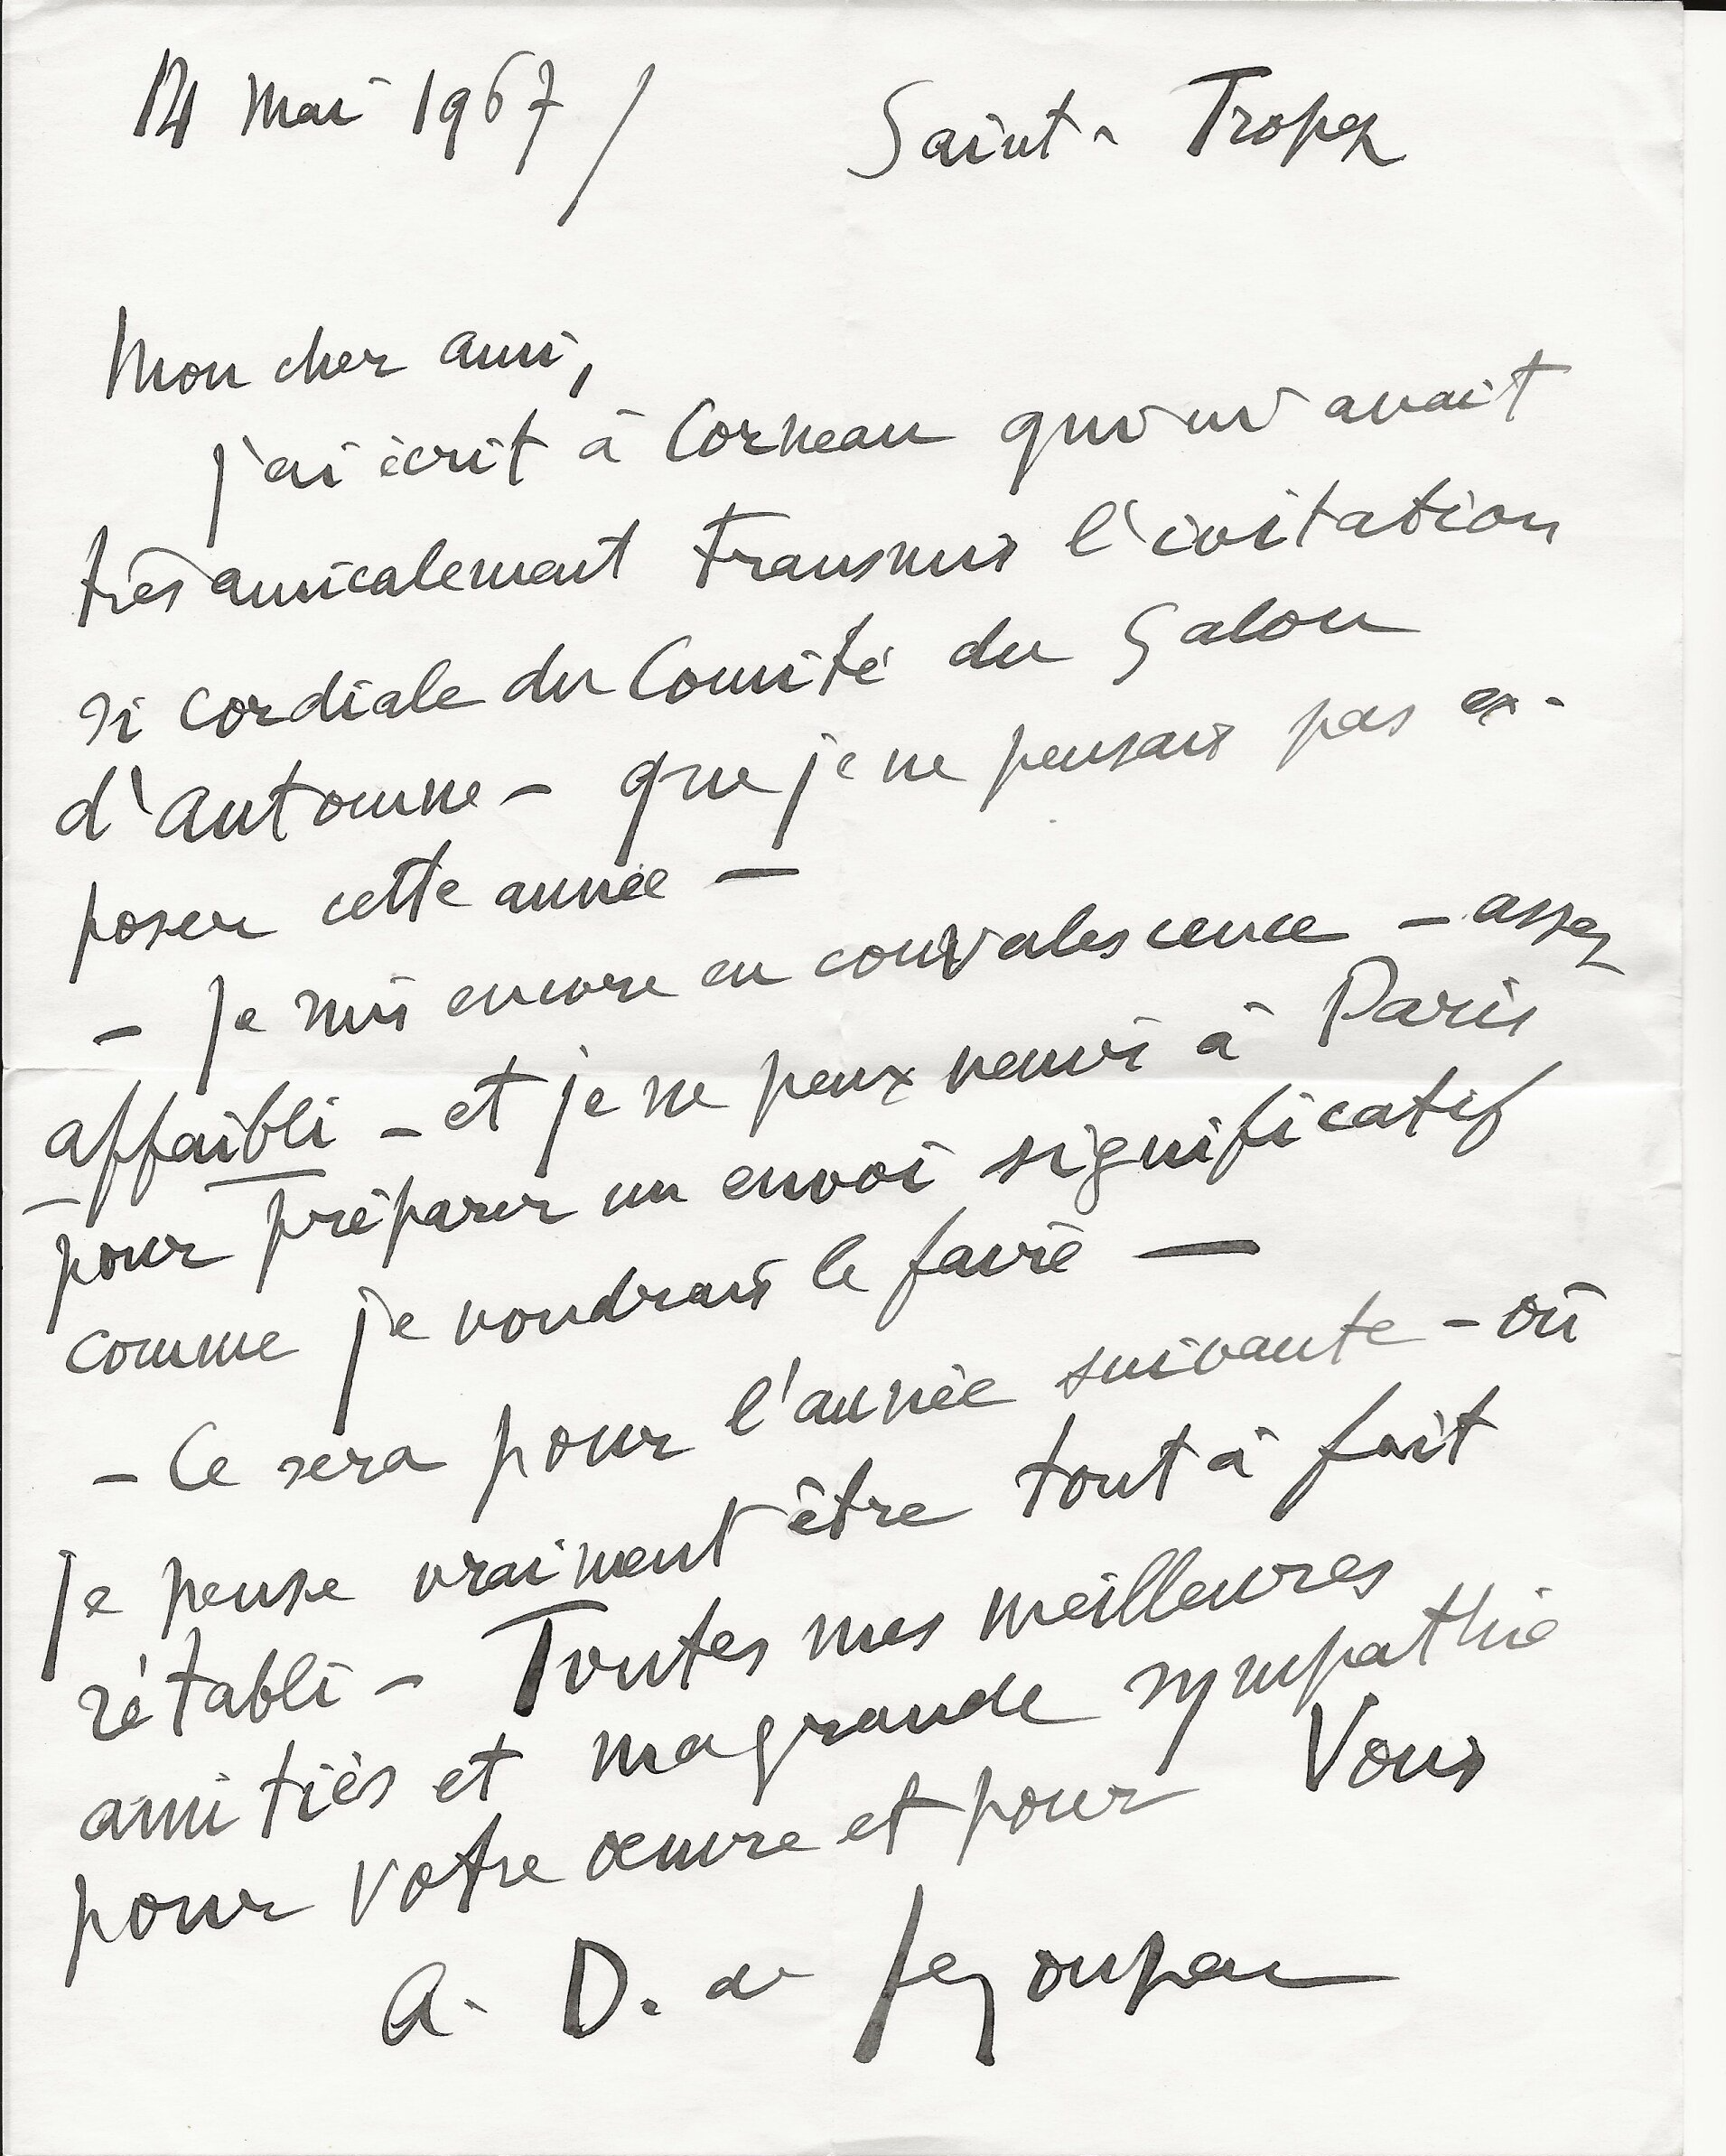 14 Mai 1967 / Saint-Tropez
Mon cher ami,
j'ai écrit à Corneau qui m'avait
très amicalement transmis l'ivitation
si cordiale du Comité du Salon
d'Automne - que je ne pensais pas ex-
poser cette année -
- Je suis encore en convalescence - assez
affaibli - et je ne peux venir à Paris
pour préparer un envoi significatif
comme je voudrais le faire -
- Ce sera pour l'année suivante - où
je pense vraiment être tout à fait
rétabli - Toutes mes meilleures
amitiés et ma grande sympathie
pour votre œuvre et pour Vous
A. D. de Segonzac